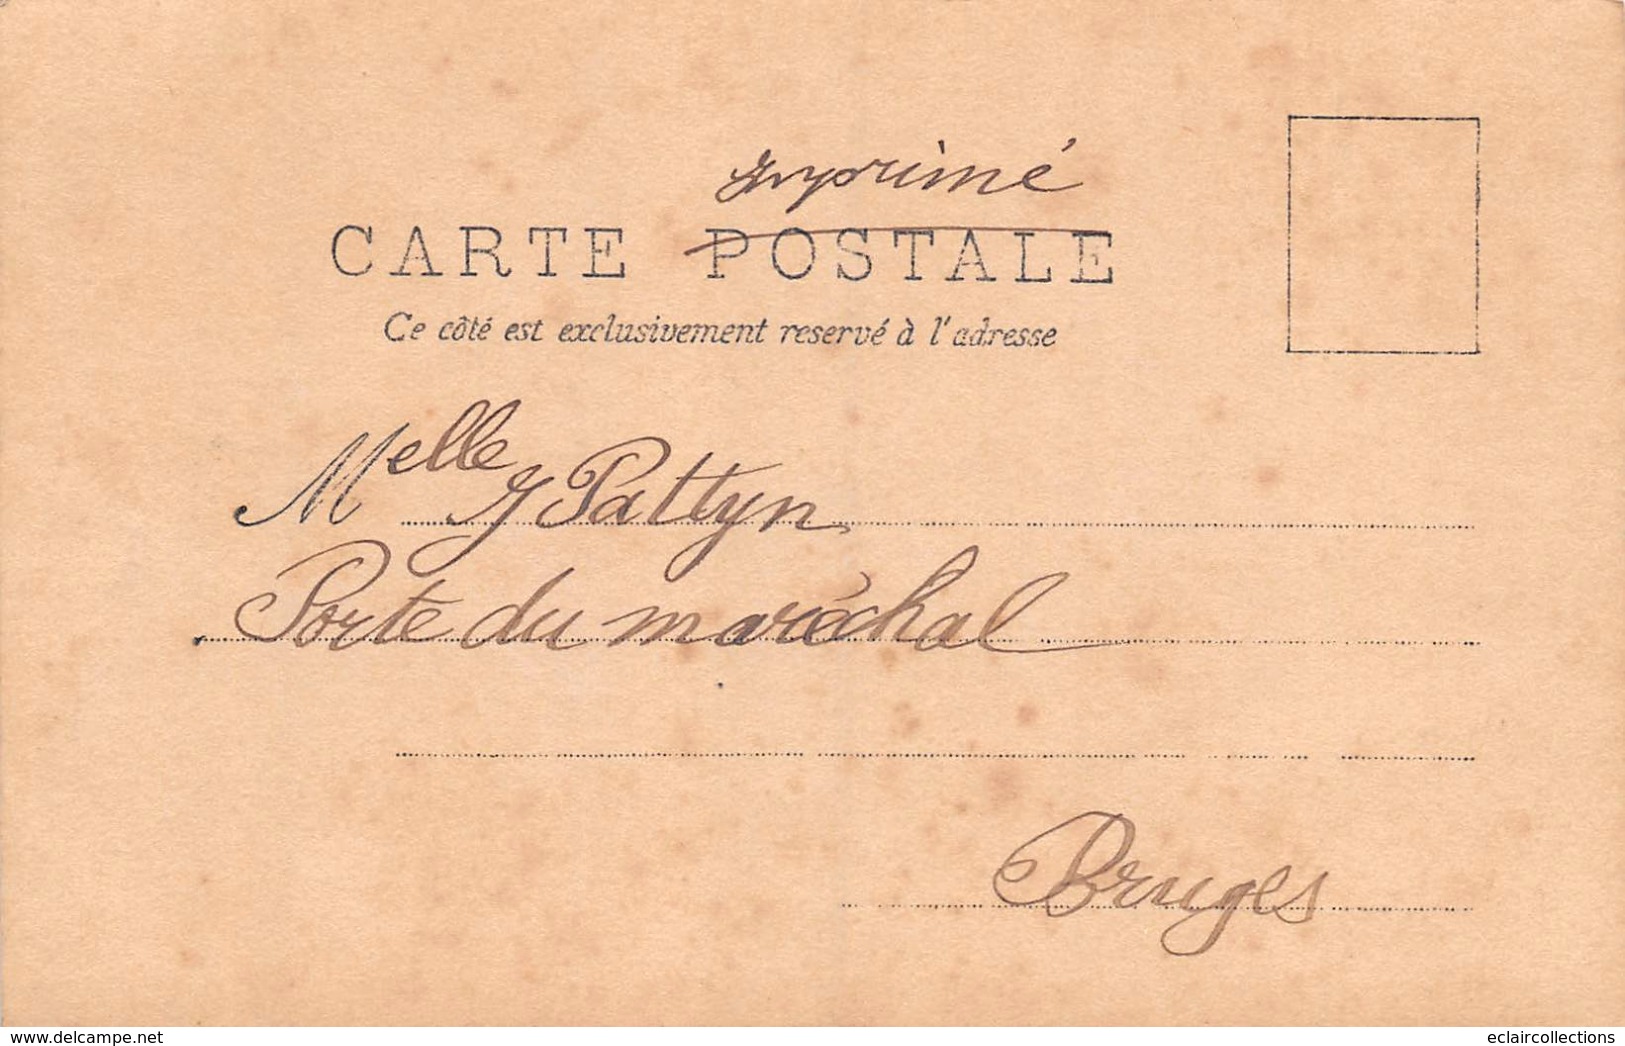 Imprimé
CARTE POSTALE
Ce côté est exclusivement reservé à l'adresse
Melle J Pattyn
Porte du maréchal
Bruges
www.delcampe.net
eclaircollections